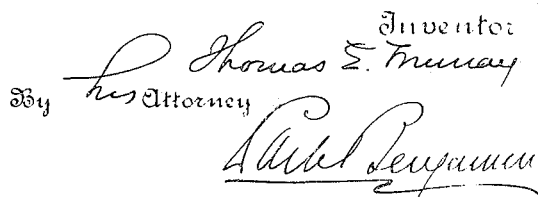 Inventor
Thomas E. Murray
By his Attorney
Park Benjamin